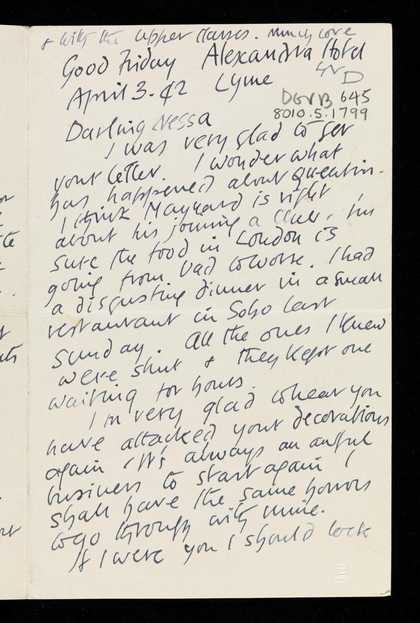 & with the upper classes. Much love
Good Friday Alexandra Hotel
April 3. 42 Lyme
D
DGVB 645
8010.5.1799
Darling Nessa
I was very glad to get
your letter. I wonder what
has happened about Quentin.
I think Maynard is right
about his joining a club. I'm
sure the food in London is
going from bad to worse. I had
a disgusting dinner in a small
restaurant in Soho last
Sunday. All the ones I knew
were shut & they kept one
waiting for hours.
I'm very glad to hear you
have attacked your decorations
again. It's always an awful
business to start again I
shall have the same horrors
to go through with mine.
If I were you I should lock